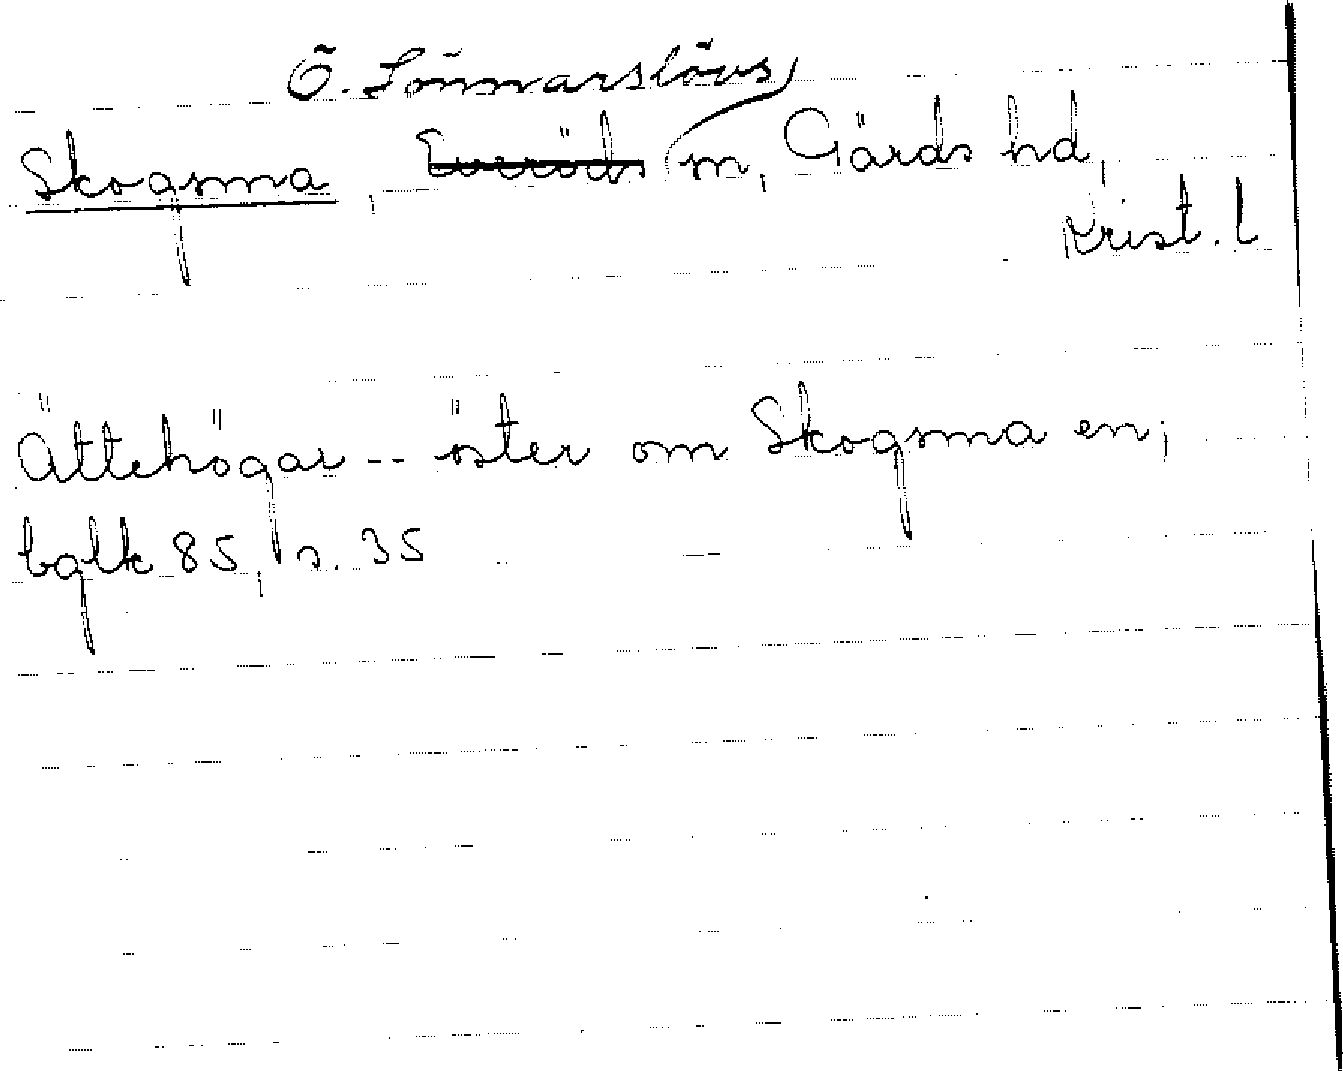 Ö. Sönnarslövs
Skogsma, Everöds m, Gärds hd,
Krist. l
Ättehögar -- öster om Skogsma en;
bglk 85, s. 35